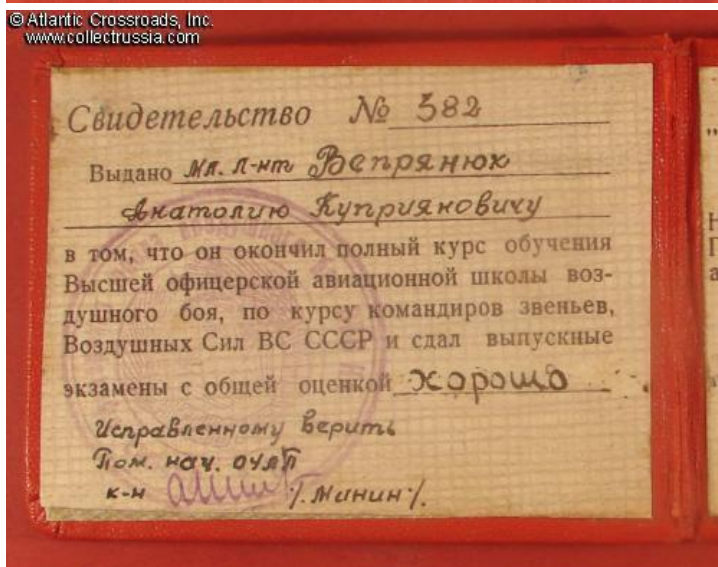 © Atlantic Crossroads, Inc.
www.collectrussia.com
Свидетельство № 582
Выдано мл. л-нт Вепрянюк
Анатолию Куприяновичу
в том, что он окончил полный курс обучения
Высшей офицерской авиационной школы воз-
душного боя, по курсу командиров звеньев,
Воздушных Сил ВС СССР и сдал выпускные
экзамены с общей оценкой хорошо
Исправленному верить
Пом. нач.
к-н /Минин/.